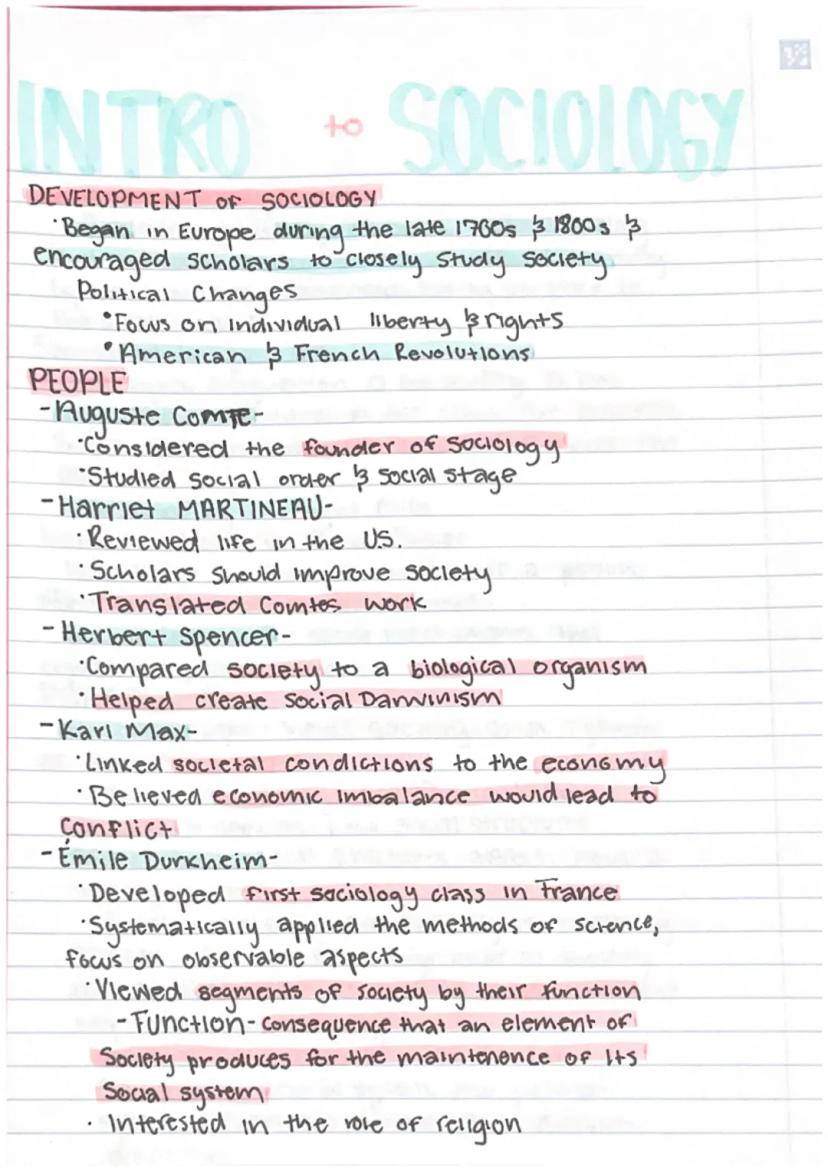 INTRO to SOCIOLOGY
DEVELOPMENT OF SOCIOLOGY
·Began in Europe during the late 1700s & 1800s &
encouraged scholars to closely study society
Political Changes
•Focus on individual liberty & rights
•American & French Revolutions
PEOPLE
-Auguste Comte-
·Considered the founder of Sociology
·Studied social order & social stage
-Harriet MARTINEAU-
·Reviewed life in the US.
·Scholars should improve society
·Translated Comtes work
-Herbert Spencer-
·Compared society to a biological organism
·Helped create Social Darwinism
-Karl Max-
·Linked societal condictions to the economy
·Believed economic imbalance would lead to
Conflict
-Émile Durkheim-
·Developed first sociology class in France
·Systematically applied the methods of science,
focus on observable aspects
·Viewed segments of society by their function
-Function- consequence that an element of
Society produces for the maintenence of its
Social system
· Interested in the role of religion